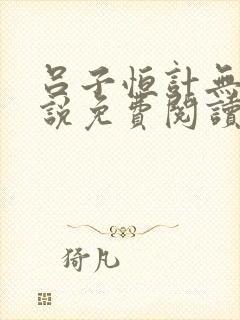 呂子恒計無
說免費閱讀
猗凡